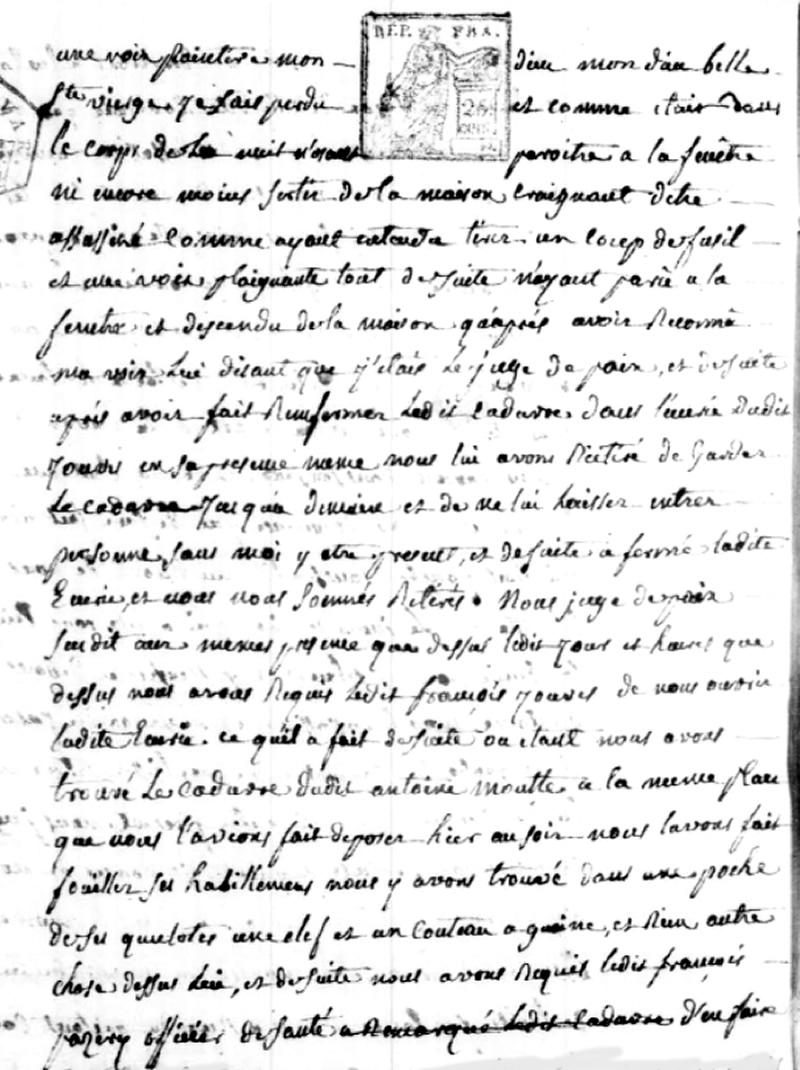 RÉP. FRA.
25
une voix plaintive mon — dieu mon dieu belle
Ste vierge je suis perdu et comme etait dans
le corps de la nuit n'osant paroitre a la fenêtre
ni encore moins sortir de la maison craignant d'etre
assassiné comme ayant entendu tirer un coup de fusil
et une voix plaignante tout de suite n'ayant parû a la
fenetre et descendu de la maison qu'après avoir Reconnû
ma voix Lui disant que j'etais Le juge de paix, et de suite
après avoir fait Renfermer Ledit Cadavre dans l'ecurie dudit
jouves en sa presence meme nous lui avons de Garder
Le cadavre jusqu'a demain et de ne lui Laisser entrer
personne sans moi y etre present, et de suite a fermé ladite
Ecurie, et nous nous sommes Retirés. Nous juge de paix
susdit aux memes presence que dessus ledit jour et heures que
dessus nous avons Requis Ledit françois jouves de nous ouvrir
ladite Ecurie. ce qu'il a fait de suite ou etant nous avons
trouvé Le cadavre dudit antoine moutte a la meme place
que nous l'avions fait deposer hier au soir nous lavons fait
fouiller ses habillemens nous y avons trouvé dans une poche
de ses quelotes une clef et un Couteau a gaine, et Rien autre
chose dessus Lui, et de suite nous avons Requis ledit françois
officier de santé a Remarqué Ledit Cadavre d'en faire